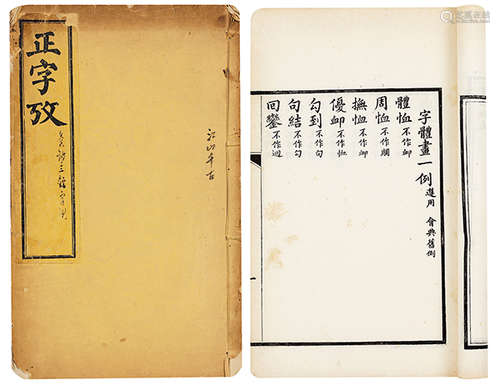 正字攷
江山千古
字體畫一例 選用會典舊例
體恤 不作卹
周恤 不作賙
撫恤 不作卹
優卹 不作恤
勾到 不作句
句結 不作勾
回鑾 不作迴